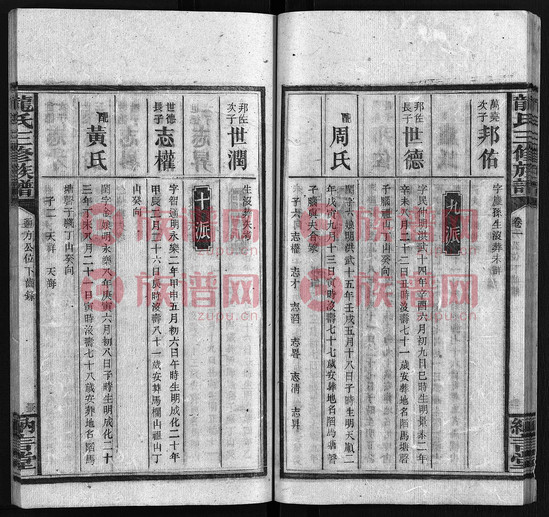 龍氏三修族譜
卷一
萬葵次子邦佑
字慶孫生沒葬未詳
九派
邦佐長子世德
字民仲明洪武十四年辛酉六月初九日巳時生明景泰二年
辛未八月二十二日丑時沒壽七十一歲安葬地名陌馬塘響
山癸向
配周氏
閨字
娘明洪武十五年壬戌五月十八日子時生明天順二
年戊寅九月十三日寅時沒壽七十七歲安葬地名陌馬塘響
子職與夫合冢
子六 志權 志才 志昇 志清 志賢
邦佐次子世潤
生沒葬失考
十派
世德長子志權
字智通明永樂二年甲申五月初六日午時生明成化二十年
甲辰二月二十六日辰時沒壽八十一歲安葬馬欄山祖山丁
山癸向
配黃氏
閨字
娘明永樂八年庚寅六月初八日子時生明成化二十
三年丁未八月二十一日寅時沒壽七十八歲安葬地名陌馬
塘響子職丁山癸向
子二 天奔 天海
龍氏三修族譜
公位下齒錄
納言堂